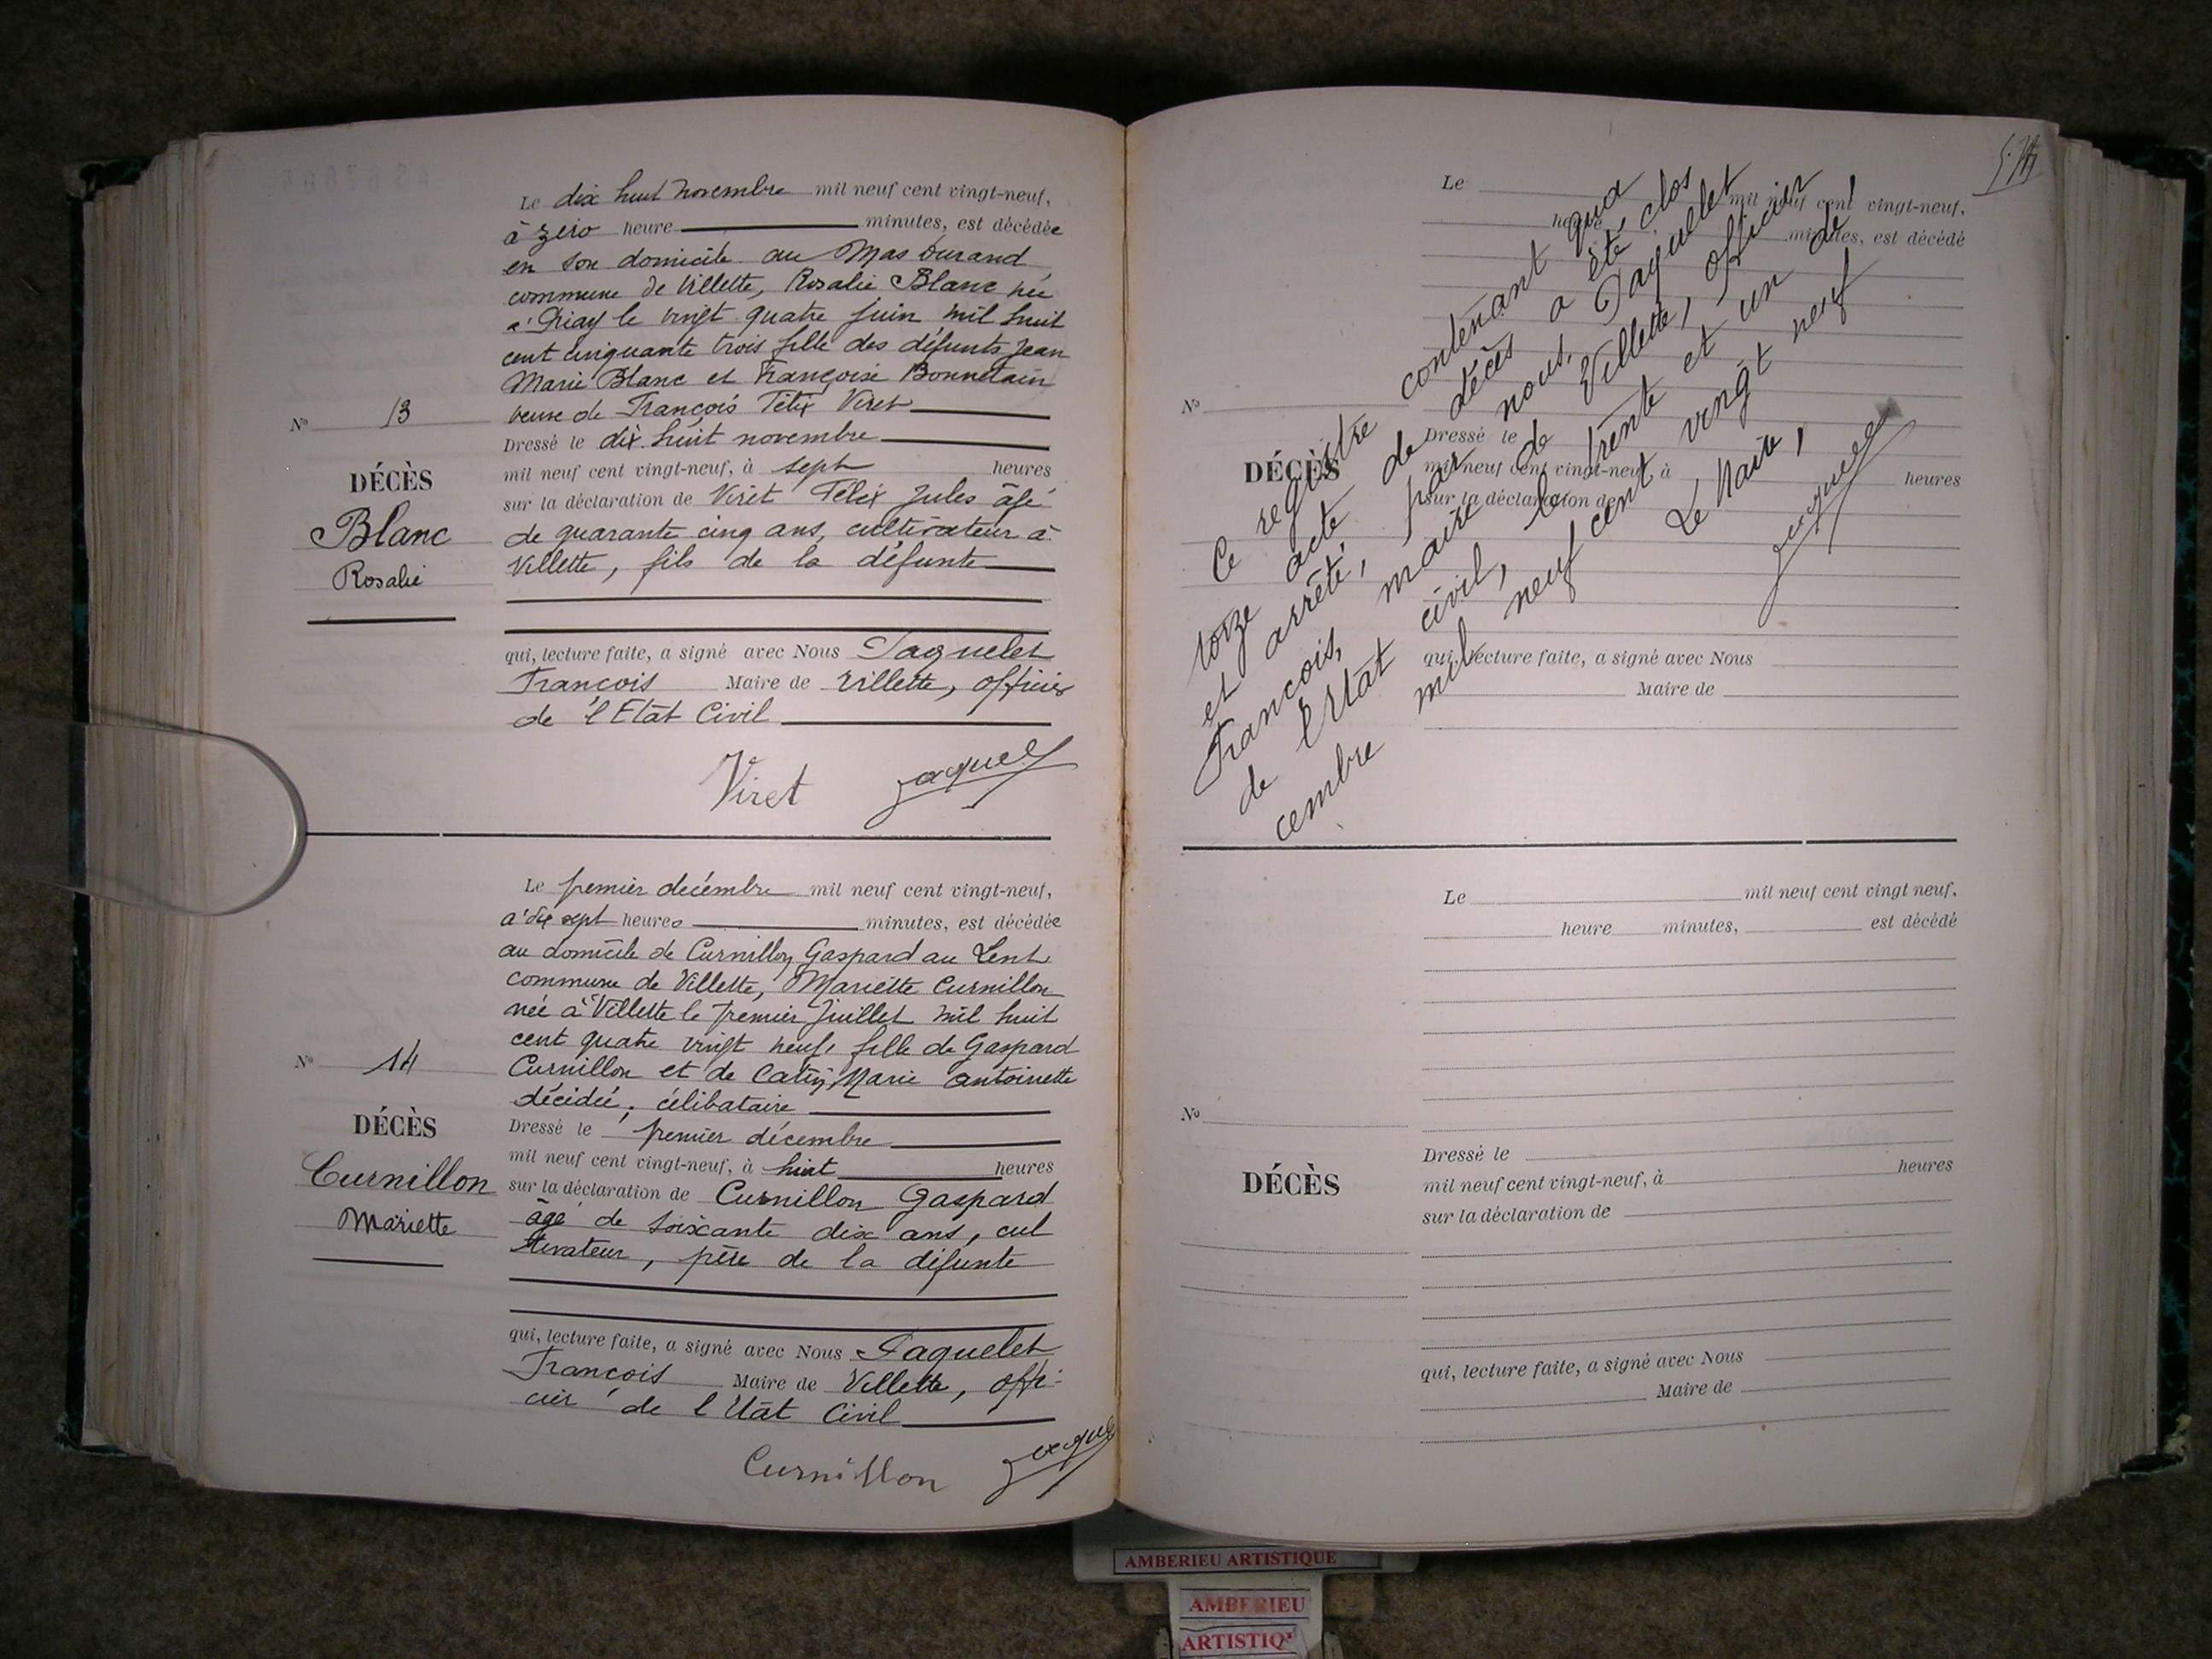 Le dix huit novembre mil neuf cent vingt-neuf,
à zéro heure minutes, est décédée
en son domicile au Mas Durand,
commune de Villette, Rosalie Blanc née
à Priay le vingt quatre juin mil huit
cent cinquante trois fille des défunts Jean
Marie Blanc et Françoise Bonnetain
veuve de François Félix Viret
Dressé le dix huit novembre
mil neuf cent vingt-neuf, à sept heures
sur la déclaration de Viret Félix Jules âgé
de quarante cinq ans, cultivateur à
Villette, fils de la défunte
qui, lecture faite, a signé avec Nous Jaquelet
François Maire de Villette, officier
de l'Etat Civil
Viret
N° 13
DÉCÈS
Blanc
Rosalie
Le premier décembre mil neuf cent vingt-neuf,
à dix sept heures minutes, est décédée
au domicile de Curnillon Gaspard au Lent
commune de Villette, Mariette Curnillon
née à Villette le premier Juillet mil huit
cent quatre vingt neuf, fille de Gaspard
Curnillon et de Marie antoinette
décédée, célibataire
Dressé le premier décembre
mil neuf cent vingt-neuf, à huit heures
sur la déclaration de Curnillon Gaspard
âgé de soixante dix ans, cul
tivateur, père de la défunte
qui, lecture faite, a signé avec Nous Jaquelet
François Maire de Villette, offi-
cier de l'Etat Civil
Curnillon
N° 14
DÉCÈS
Curnillon
Mariette
Ce registre contenant qua
torze acte de décès a été clos
et arrêté, par nous, Jaquelet
François, maire de Villette, officier
de l'Etat civil, le trente et un dé
cembre mil neuf cent vingt neuf
Le Maire,
Le mil neuf cent vingt-neuf,
heure minutes, est décédé
N°
DÉCÈS
Dressé le
mil neuf cent vingt-neuf, à heures
sur la déclaration de
qui, lecture faite, a signé avec Nous
Maire de
Le mil neuf cent vingt neuf,
heure minutes, est décédé
N°
DÉCÈS
Dressé le
mil neuf cent vingt-neuf, à heures
sur la déclaration de
qui, lecture faite, a signé avec Nous
Maire de
AMBERIEU ARTISTIQUE
AMBERIEU
ARTISTIQ